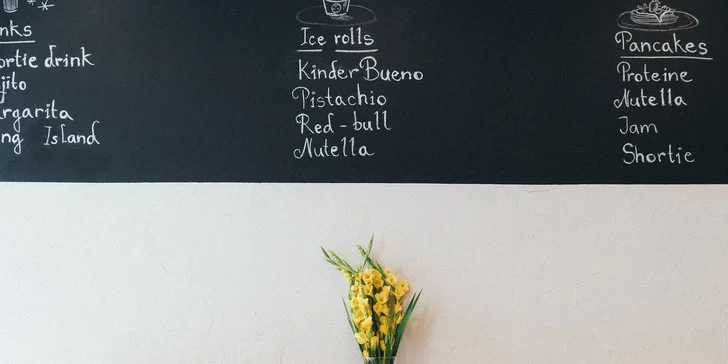 nks
ortie drink
jito
rgarita
ng Island
Ice rolls
KinderBueno
Pistachio
Red-bull
Nutella
Pancakes
Proteine
Nutella
Jam
Shortie